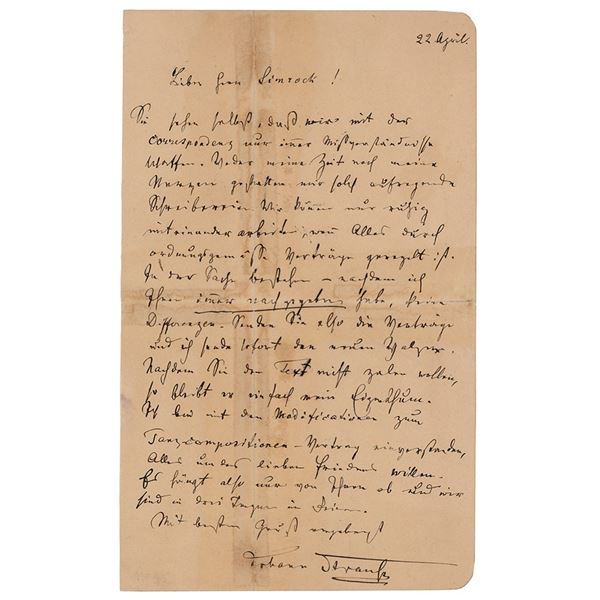 22 April.
Lieber Herr Simrock!
Sie sehen selbst, daß wir mit der
Correspondenz nur immer Mißverständnisse
schaffen. Weder meine Zeit noch meine
Nerven gestatten mir solch aufregende
Schreibereien. Wir können nur ruhig
miteinander arbeiten, wenn Alles durch
ordnungsgemäße Verträge geregelt ist.
In der Sache bestehen – nachdem ich
Ihnen immer nachgegeben habe, keine
Differenzen. Senden Sie also die Verträge
und ich sende sofort den neuen Walzer.
Nachdem Sie den Text nicht zalen wollen,
so bleibt er einfach mein Eigenthum.
Ich bin mit den Modificationen zum
Tanzcompositionen-Vertrag einverstanden,
Alles um des lieben Friedens willen.
Es hängt also nur von Ihnen ab und wir
sind in drei Tagen in
Mit bestem Gruß ergebenst
Johann Strauss